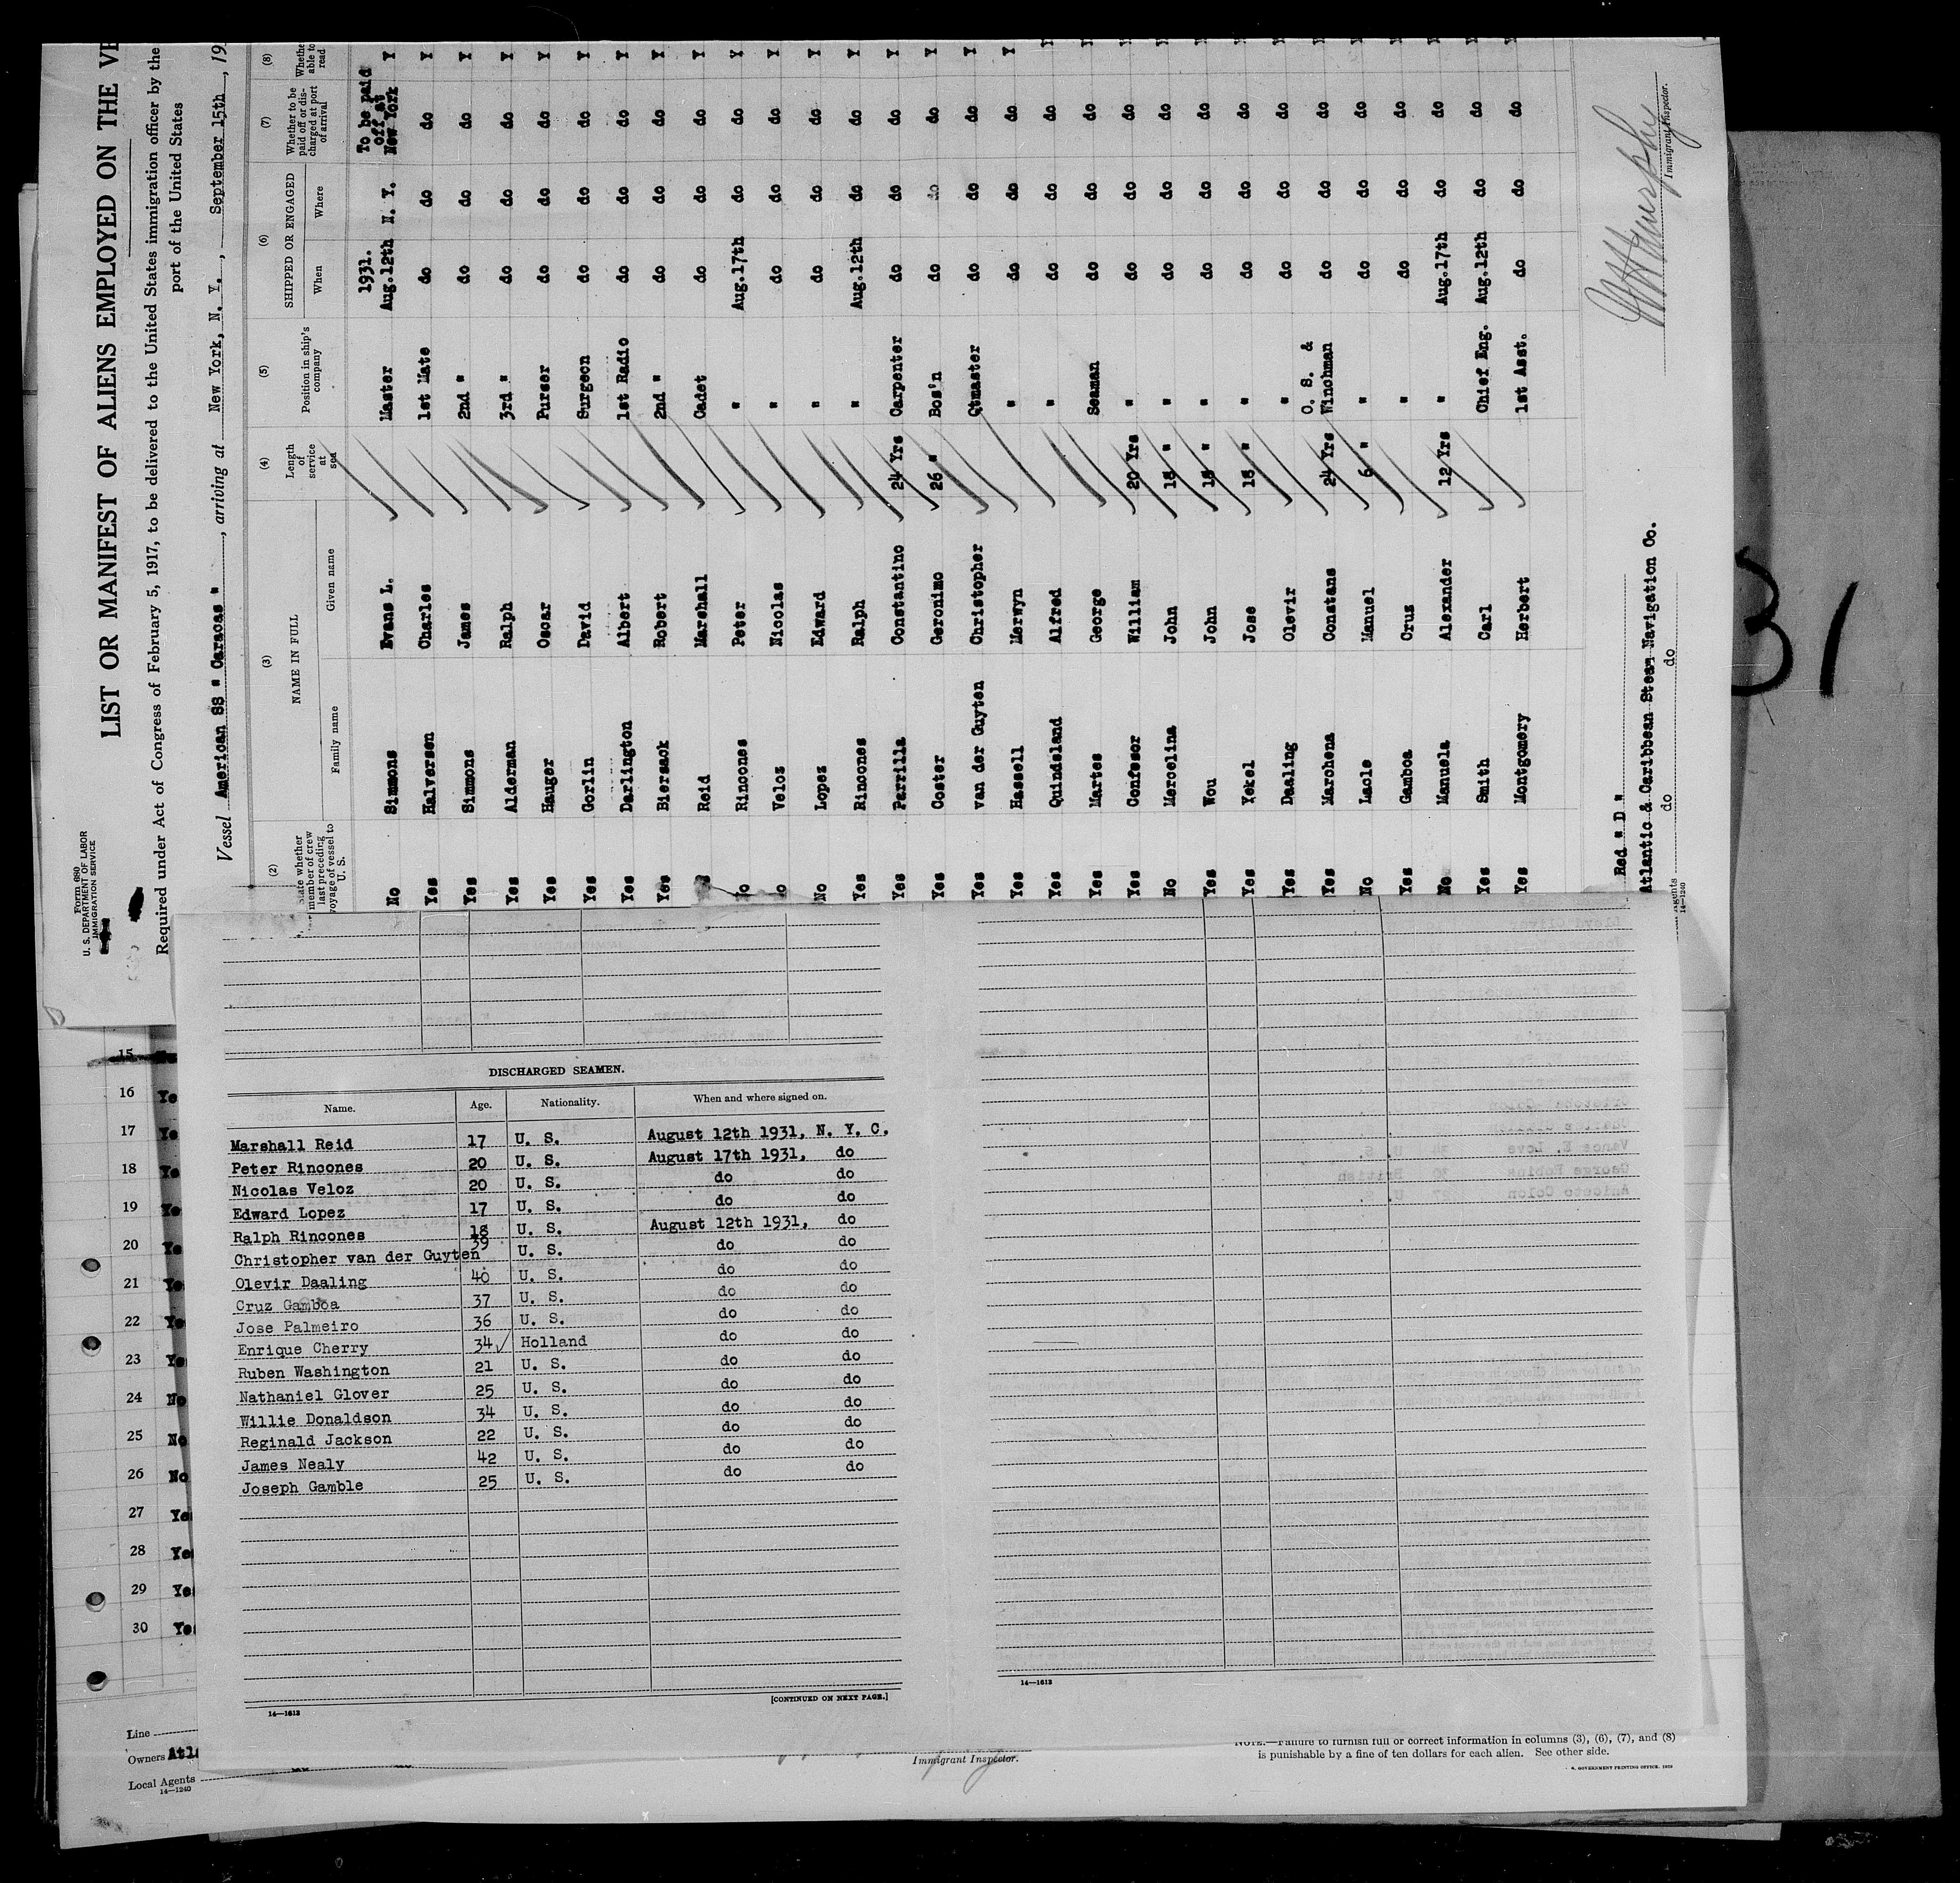 Form 680
U. S. DEPARTMENT OF LABOR
IMMIGRATION SERVICE
LIST OR MANIFEST OF ALIENS EMPLOYED ON THE VE
Required under Act of Congress of February 5, 1917, to be delivered to the United States immigration officer by the
port of the United States
Vessel American SS " Caracas ", arriving at New York, N. Y., September 15th, 19
(2) (3) (4) (5) (6) (7) (8)
State whether member of crew last preceding voyage of vessel to U. S.
NAME IN FULL
Family name Given name
Length of service at sea
Position in ship's company
SHIPPED OR ENGAGED
When Where
Whether to be paid off or discharged at port of arrival
Whether able to read
1931. To be paid off at
No Simmons Evans L. Master Aug.12th N. Y. New York Y
Yes Halversen Charles 1st Mate do do do Y
Yes Simmons James 2nd " do do do Y
Yes Alderman Ralph 3rd " do do do Y
Yes Hauger Oscar Purser do do do Y
Yes Gorlin David Surgeon do do do Y
Yes Darlington Albert 1st Radio do do do Y
Yes Biersack Robert 2nd " do do do Y
Reid Marshall Cadet do do do Y
Rincones Peter " Aug.17th do do Y
Veloz Nicolas " do do do Y
No Lopez Edward " do do do Y
Yes Rincones Ralph " Aug.12th do do Y
Yes Parrilla Constantino 24 Yrs Carpenter do do do Y
Yes Coster Geronimo 26 " Bos'n do do do Y
Yes van der Guyten Christopher Qtmaster do do do Y
Yes Hassell Merwyn " do do do Y
Yes Quindeland Alfred " do do do
Yes Martes George Seaman do do do
Yes Confesor William 20 Yrs " do do do
No Mercelina John 18 " " do do do
Yes Wou John 18 " " do do do
Yes Yekel Jose 18 " " do do do
Yes Daaling Olevir " do do do
Yes Marchena Constans 24 Yrs O. S. & Winchman do do do
No Lacle Manuel 6 " " do do do
Yes Gamboa Cruz " do do do
No Manuela Alexander 12 Yrs " Aug.17th do do
Yes Smith Carl Chief Eng. Aug.12th do do
Yes Montgomery Herbert 1st Asst. do do do
Red " D "
Atlantic & Caribbean Steam Navigation Co.
do do
Agents
14—1240
Immigrant Inspector.
31
15
16 Ye
17 Ye
18 Ye
19 Ye
20 Ye
21 Ye
22 Ye
23 Ye
24 No
25 No
26 No
27 Ye
28 Ye
29 Ye
30 Ye
DISCHARGED SEAMEN.
Name. Age. Nationality. When and where signed on.
Marshall Reid 17 U. S. August 12th 1931, N. Y. C.
Peter Rincones 20 U. S. August 17th 1931, do
Nicolas Veloz 20 U. S. do do
Edward Lopez 17 U. S. do do
Ralph Rincones 18 U. S. August 12th 1931, do
Christopher van der Guyten 39 U. S. do do
Olevir Daaling 40 U. S. do do
Cruz Gamboa 37 U. S. do do
Jose Palmeiro 36 U. S. do do
Enrique Cherry 34 Holland do do
Ruben Washington 21 U. S. do do
Nathaniel Glover 25 U. S. do do
Willie Donaldson 34 U. S. do do
Reginald Jackson 22 U. S. do do
James Nealy 42 U. S. do do
Joseph Gamble 25 U. S. do do
14—1613
[CONTINUED ON NEXT PAGE.]
14—1613
Line
Owners Atla
Local Agents
14—1240
Immigrant Inspector.
NOTE.—Failure to furnish full or correct information in columns (3), (6), (7), and (8)
is punishable by a fine of ten dollars for each alien. See other side.
GOVERNMENT PRINTING OFFICE